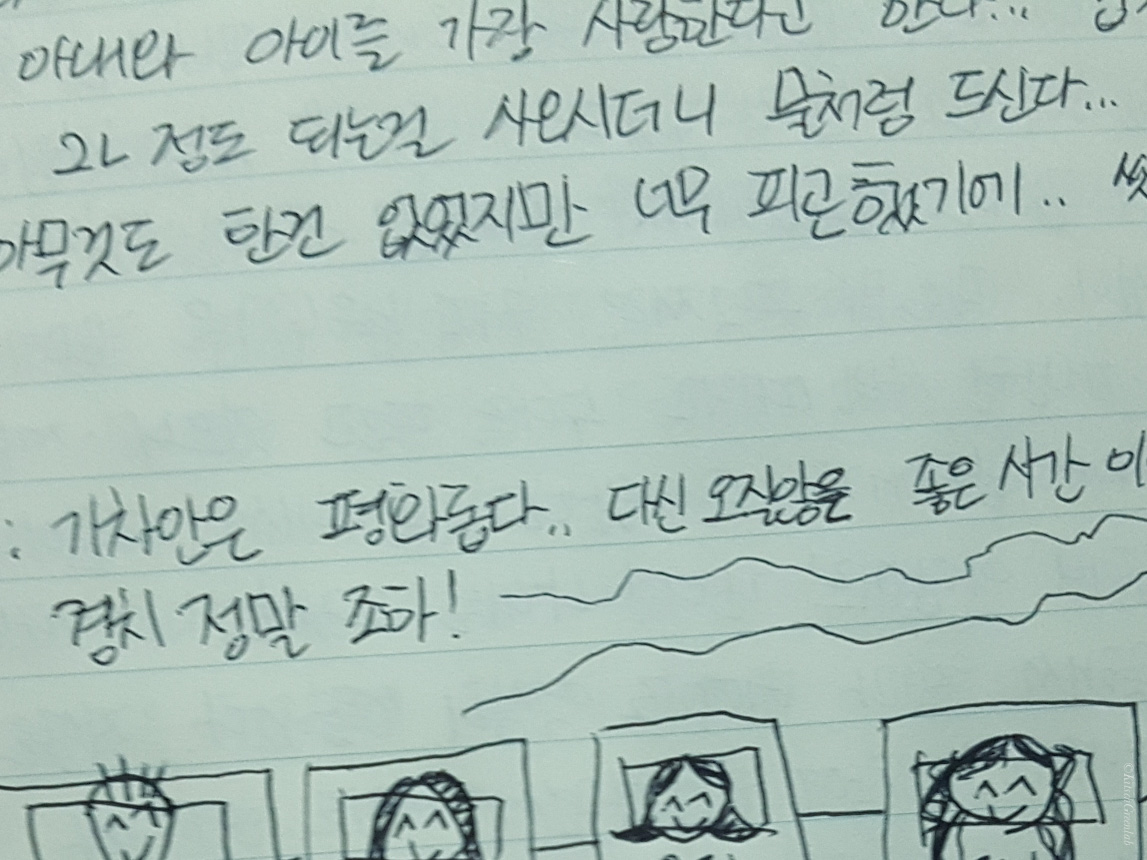 아내와 아이를 가장 사랑한다고 한다...
그 정도 되는걸 사오시더니 물처럼 드신다...
아무것도 한건 없었지만 너무 피곤했기에..
: 기차안은 평화롭다.. 다신 오질않을 좋은 시간이
경치 정말 조하!